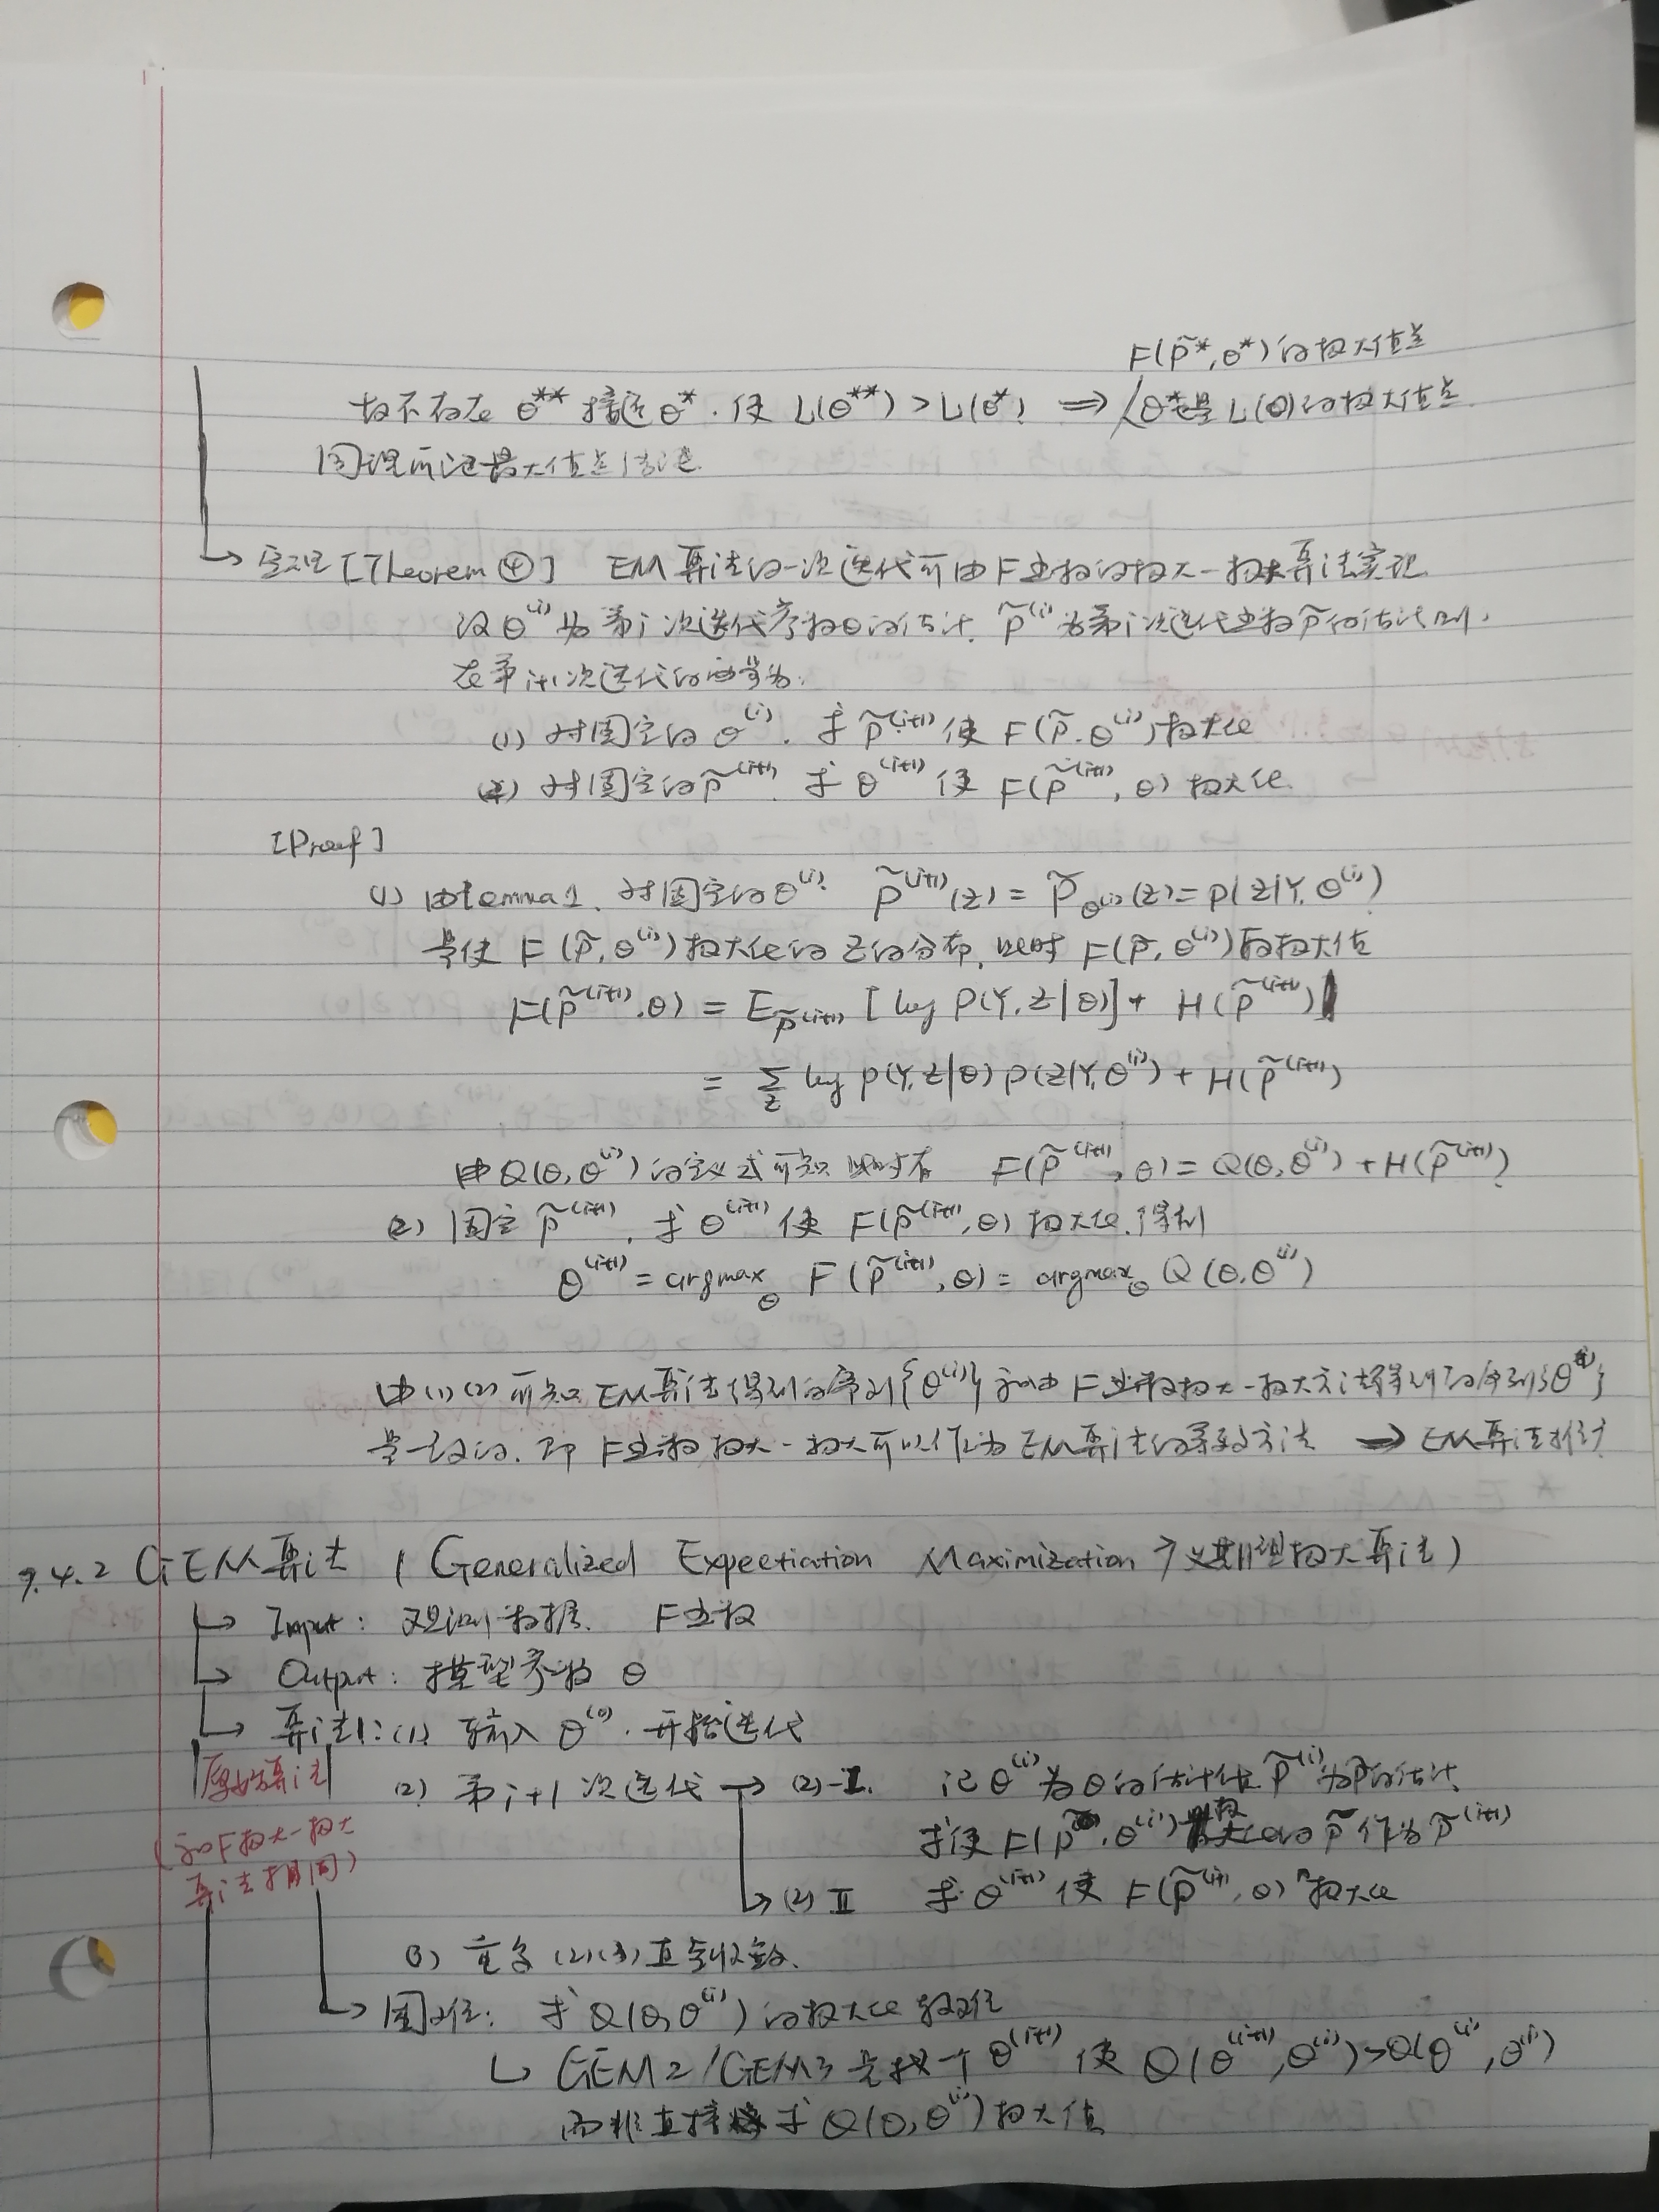 F(p̃*,θ*)的极大值点
故不存在 θ** 接近θ*. 使 L(θ**) > L(θ*) ⇒ θ*是 L(θ)的极大值点
同理可证最大值点情况
→ 定理 [Theorem ④] EM算法的一次迭代可由F函数的极大-极大算法实现
设θ⁽ⁱ⁾为第i次迭代参数θ的估计, p̃⁽ⁱ⁾为第i次迭代函数p̃的估计 则,
在第i+1次迭代的两步为:
(1) 对固定的 θ⁽ⁱ⁾. 求 p̃⁽ⁱ⁺¹⁾ 使 F(p̃.θ⁽ⁱ⁾)极大化
(2) 对固定的p̃⁽ⁱ⁺¹⁾. 求 θ⁽ⁱ⁺¹⁾ 使 F(p̃⁽ⁱ⁺¹⁾, θ) 极大化.
[Proof]
(1) 由Lemma1. 对固定的θ⁽ⁱ⁾. p̃⁽ⁱ⁺¹⁾(z) = p̃_θ⁽ⁱ⁾(z) = p(z|Y,θ⁽ⁱ⁾)
是使 F(p̃,θ⁽ⁱ⁾)极大化的 z的分布, 此时 F(p̃,θ⁽ⁱ⁾)取极大值
F(p̃⁽ⁱ⁺¹⁾.θ) = E_p̃⁽ⁱ⁺¹⁾ [log P(Y,Z|θ)] + H(p̃⁽ⁱ⁺¹⁾)
= Σ_z log p(Y,Z|θ) p(Z|Y,θ⁽ⁱ⁾) + H(p̃⁽ⁱ⁺¹⁾)
由Q(θ,θ⁽ⁱ⁾)的定义式可知 此时有 F(p̃⁽ⁱ⁺¹⁾, θ) = Q(θ,θ⁽ⁱ⁾) + H(p̃⁽ⁱ⁺¹⁾)
(2) 固定 p̃⁽ⁱ⁺¹⁾. 求 θ⁽ⁱ⁺¹⁾ 使 F(p̃⁽ⁱ⁺¹⁾,θ) 极大化.得到
θ⁽ⁱ⁺¹⁾ = argmax_θ F(p̃⁽ⁱ⁺¹⁾,θ) = argmax_θ Q(θ,θ⁽ⁱ⁾)
由(1)(2)可知 EM算法得到的序列{θ⁽ⁱ⁾}和由F函数极大-极大方法得到的序列{θ⁽ⁱ⁾}
是一致的. 即 F函数极大-极大可以作为EM算法的等效方法 → EM算法推广
9.4.2 GEM算法 (Generalized Expectiation Maximization 广义期望极大算法)
→ Input: 观测数据. F函数
→ Output: 模型参数 θ
→ 算法1: (1) 输入 θ⁽⁰⁾. 开始迭代
原始算法
(2) 第i+1次迭代 → (2)-I. 记θ⁽ⁱ⁾为θ的估计值 p̃⁽ⁱ⁾为p̃的估计
(和F极大-极大
求使 F(p̃,θ⁽ⁱ⁾)极大化的 p̃ 作为 p̃⁽ⁱ⁺¹⁾
算法相同)
→ (2) II 求 θ⁽ⁱ⁺¹⁾ 使 F(p̃⁽ⁱ⁺¹⁾,θ) 极大化
(3) 重复 (2)(3) 直到收敛.
→ 困难: 求 Q(θ,θ⁽ⁱ⁾)的极大化 较难
↳ GEM2/GEM3 是找一个 θ⁽ⁱ⁺¹⁾ 使 Q(θ⁽ⁱ⁺¹⁾,θ⁽ⁱ⁾)>Q(θ⁽ⁱ⁾,θ⁽ⁱ⁾)
而非直接 求 Q(θ,θ⁽ⁱ⁾)极大值